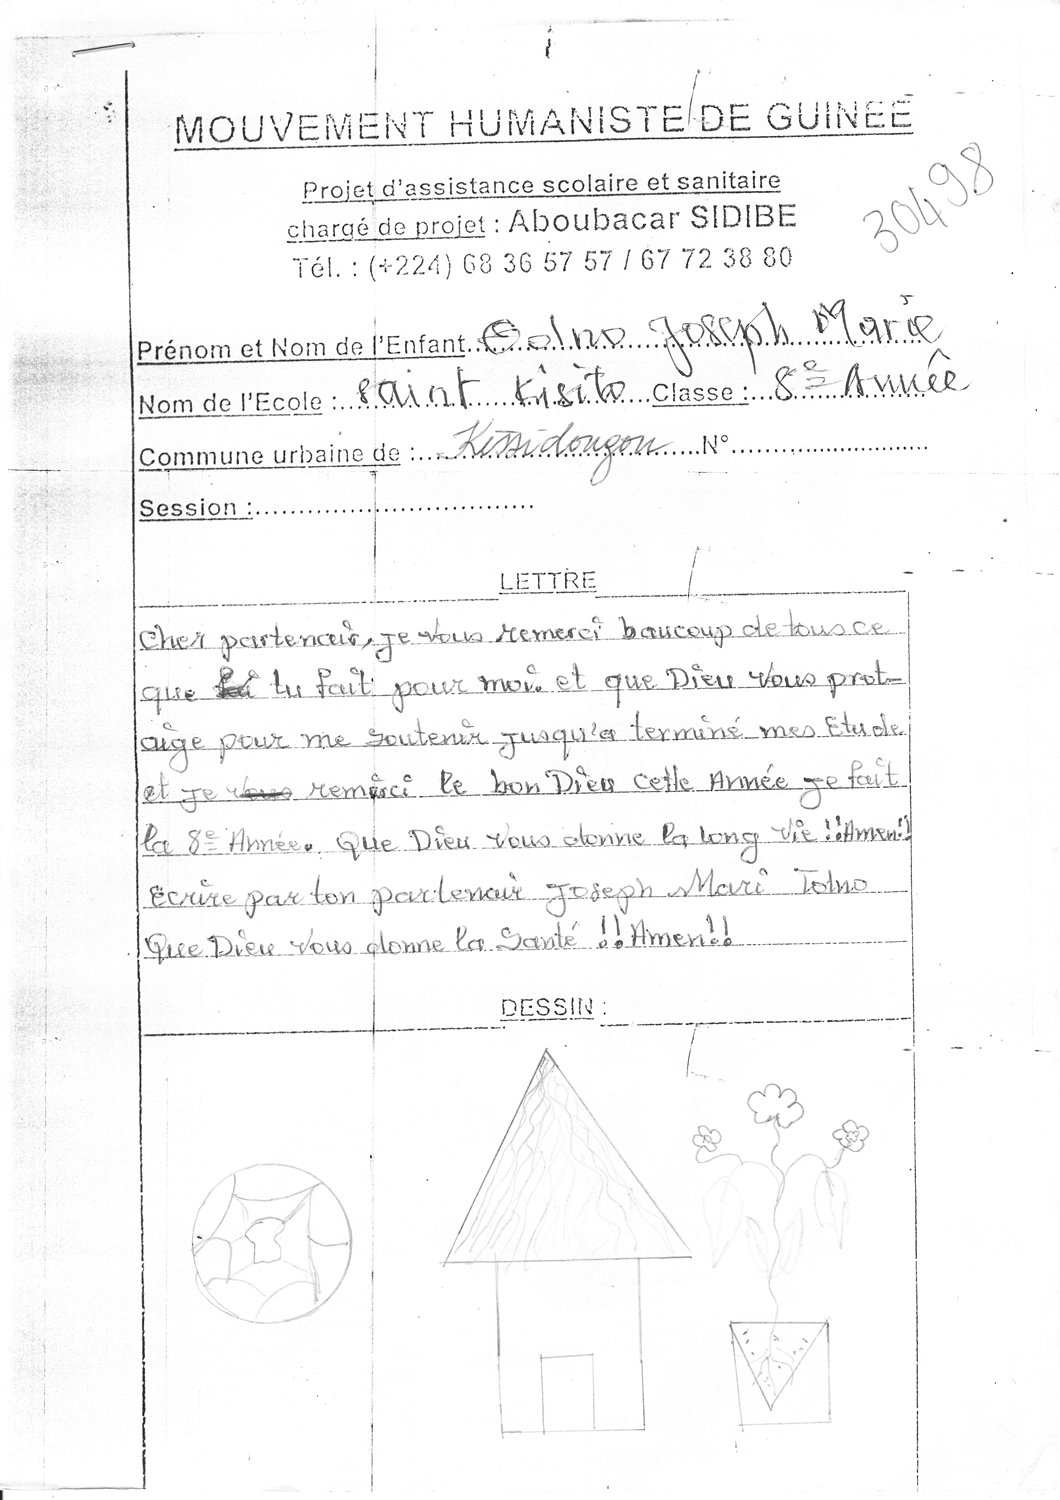 MOUVEMENT HUMANISTE DE GUINEE
Projet d'assistance scolaire et sanitaire
chargé de projet : Aboubacar SIDIBE
30498
Tél. : (+224) 68 36 57 57 / 67 72 38 80
Prénom et Nom de l'Enfant Tolno Joseph Marie
Nom de l'Ecole : saint Kisito Classe : 8e Année
Commune urbaine de : Kissidougou N°
Session :
LETTRE
Cher partenair, je vous remerci baucoup de tous ce
que tu fait pour moi. et que Dieu vous prot-
aige pour me soutenir jusqu'a terminé mes Etude
et je vous remerci le bon Dieu cette Année je fait
la 8e Année. Que Dieu vous donne la long vie !!Amen!!
Ecrire par ton partenair Joseph Mari Tolno
Que Dieu vous donne la Santé !! Amen!!
DESSIN :